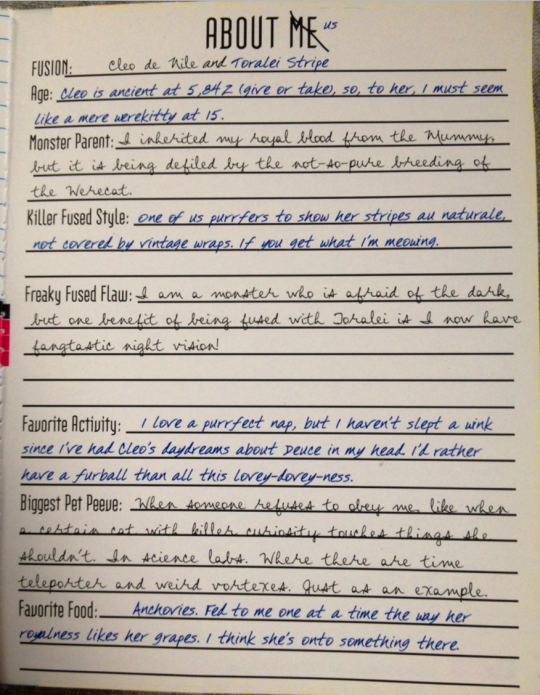 ABOUT ME us
FUSION: Cleo de Nile and Toralei Stripe
Age: Cleo is ancient at 5,842 (give or take), so, to her, I must seem
like a mere werekitty at 15.
Monster Parent: I inherited my royal blood from the Mummy,
but it is being defiled by the not-so-pure breeding of
the Werecat.
Killer Fused Style: One of us purrfers to show her stripes au naturale,
not covered by vintage wraps. If you get what I'm meowing.
Freaky Fused Flaw: I am a monster who is afraid of the dark,
but one benefit of being fused with Toralei is I now have
fangtastic night vision!
Favorite Activity: I love a purrfect nap, but I haven't slept a wink
since I've had Cleo's daydreams about Deuce in my head. I'd rather
have a furball than all this lovey-dovey-ness.
Biggest Pet Peeve: When someone refuses to obey me, like when
a certain cat with killer curiosity touches things she
shouldn't. In science labs. Where there are time
teleporter and weird vortexes. Just as an example.
Favorite Food: Anchovies. Fed to me one at a time the way her
royalness likes her grapes. I think she's onto something there.